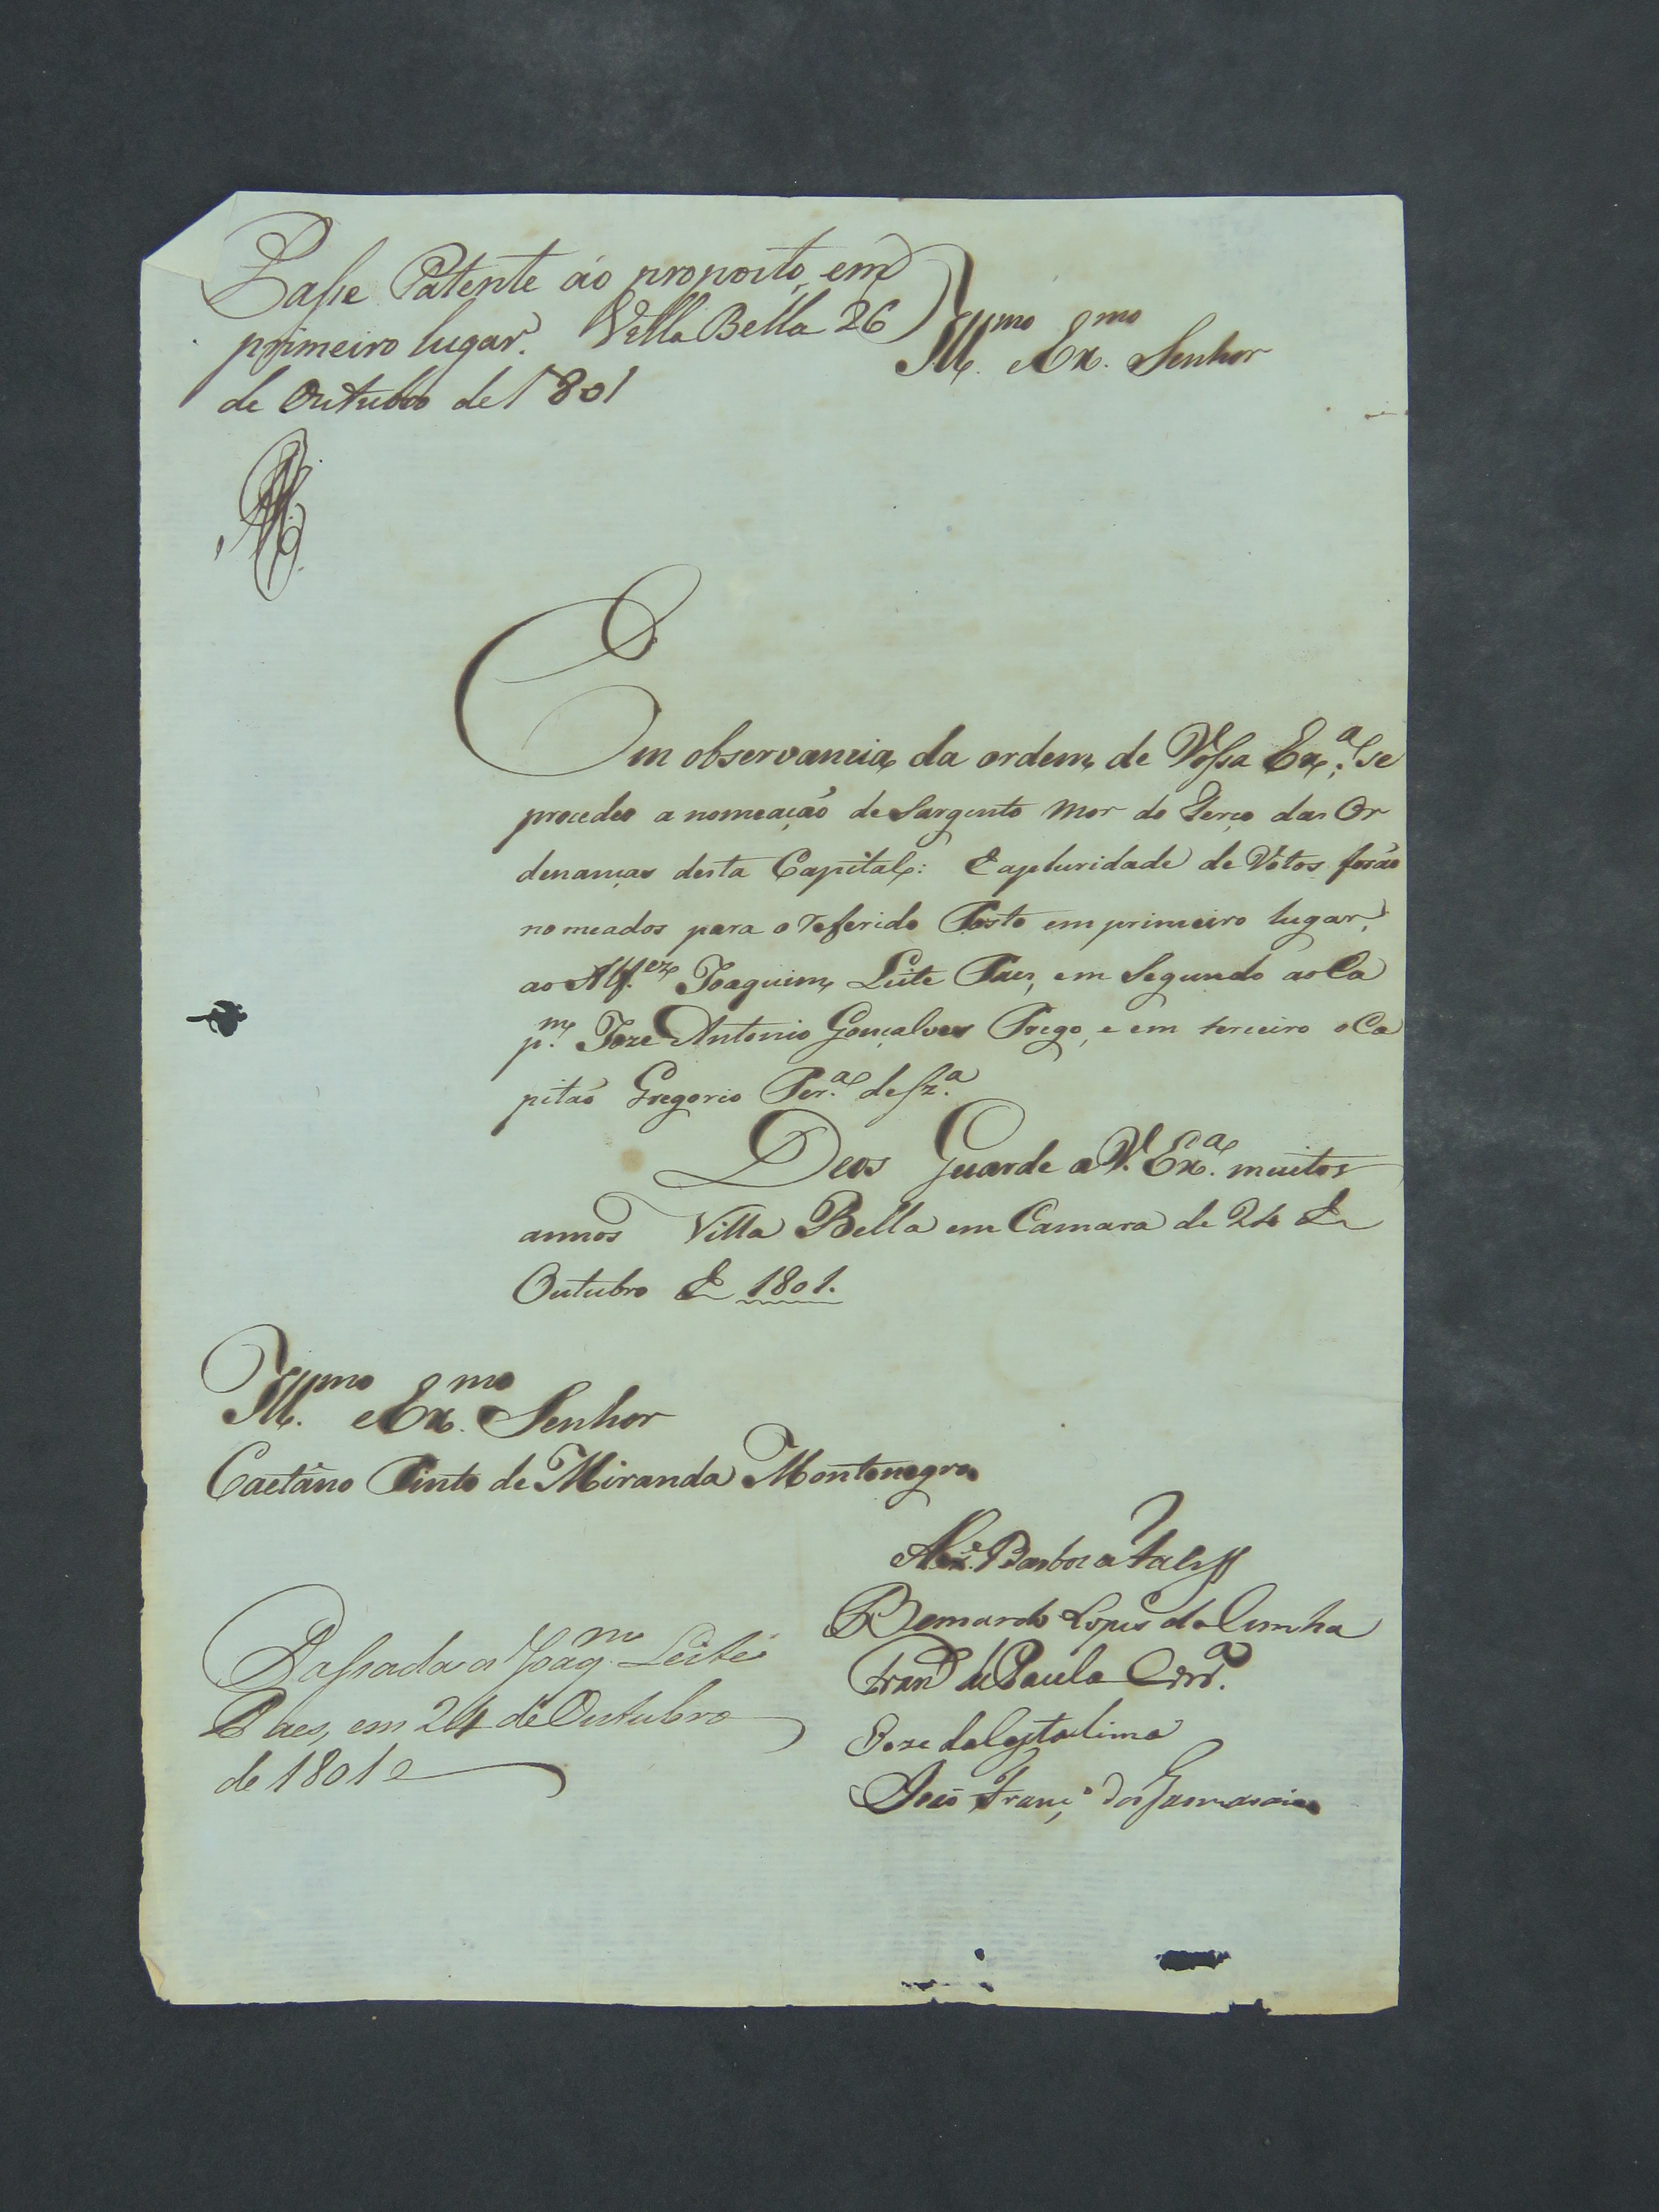 Passe Patente áo proposto em
primeiro lugar. Villa Bella 26
de Outubro de 1801
Ill.mo e Ex.mo Senhor
Em observancia da ordem de Vossa Ex.a se
procedeo a nomeação de Sargento Mor do Terço das Or
denanças desta Capital: E apluridade de Votos forão
nomeados para o referido Posto em primeiro lugar,
ao Alf.ez Joaquim Leite Paes, em Segundo ao Ca
p.m Joze Antonio Gonçalves Prego, e em terceiro o Ca
pitão Gregorio Per.a de Sz.a
Deos Guarde a V. Ex.a muitos
annos Villa Bella em Camara de 24 de
Outubro de 1801.
Ill.mo e Ex.mo Senhor
Caetano Pinto de Miranda Montenegro
Alex.e Barboza
Bernardo Lopes da Cunha
Fran.co de Paula
Joze da Costa Lima
João Franc.o dos
Passada a Joaq.m Leite
Paes, em 24 de Outubro
de 1801